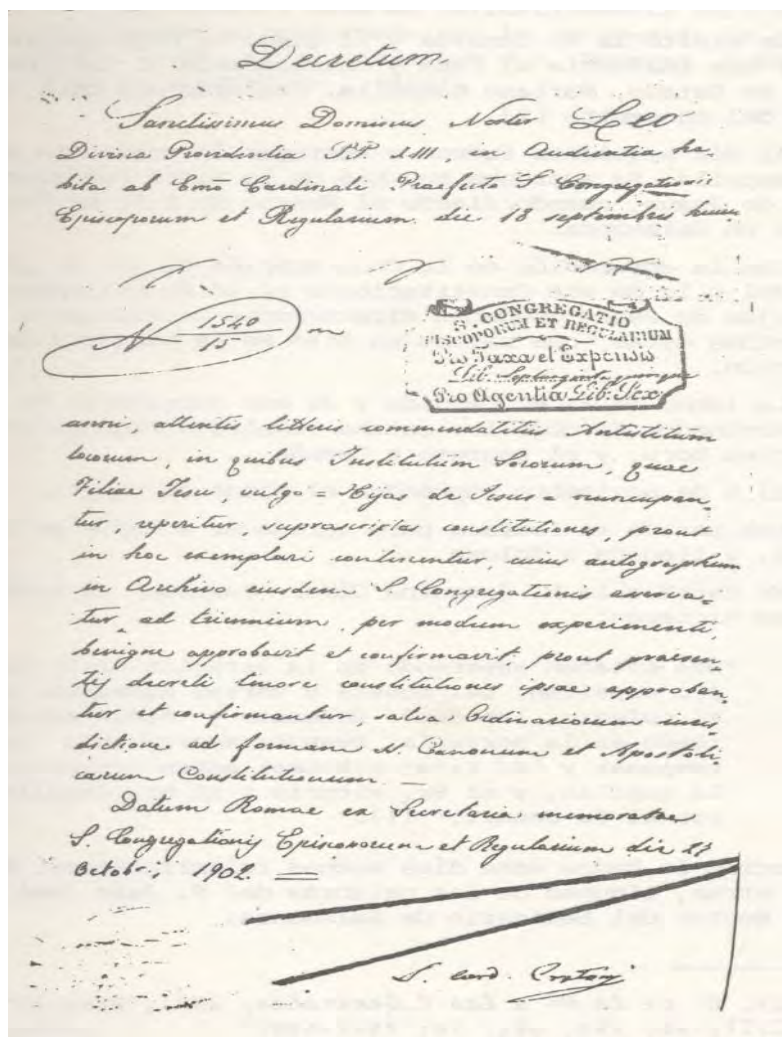 Decretum
Sanctissimus Dominus Noster Leo
Divina Providentia P.P. XIII in Audientia ha
bita ab Emo Cardinali Praefecto S. Congregationis
Episcoporum et Regularium die 18 septembris huius
N 1540/15 m
S. CONGREGATIO
EPISCOPORUM ET REGULARIUM
Pro Taxa et Expensis
Lib. Septuaginta quinque
Pro Agentia Lib. Sex
anni, attentis litteris commendatitiis Antistitum
locorum, in quibus Institutum Sororum, quae
Filiae Iesu, vulgo = Hijas de Jesus = nuncupan-
tur, reperitur, suprascriptas constitutiones, prout
in hoc exemplari continentur, cuius autographum
in Archivo eiusdem S. Congregationis asserva-
tur, ad triennium, per modum experimenti,
benigne approbavit et confirmavit, prout praesen-
tis decreti tenore constitutiones ipsae approban-
tur et confirmantur, salva Ordinariorum iuris-
dictione ad formam S. Canonum et Apostoli
carum Constitutionum —
Datum Romae ex Secretaria memoratae
S. Congregationis Episcoporum et Regularium die
Octobris 1902. =
S. Card.